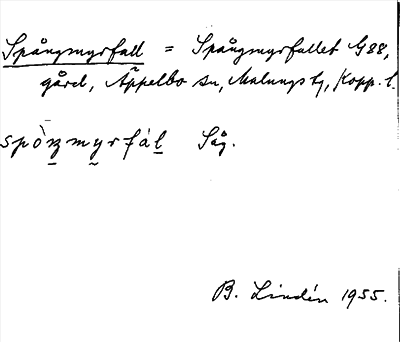 Spångmyrfall = Spångmyrfallet G88,
gård, Äppelbo sn, Malungs tj, Kopp. l.
Såg.
B. Lindén 1955.